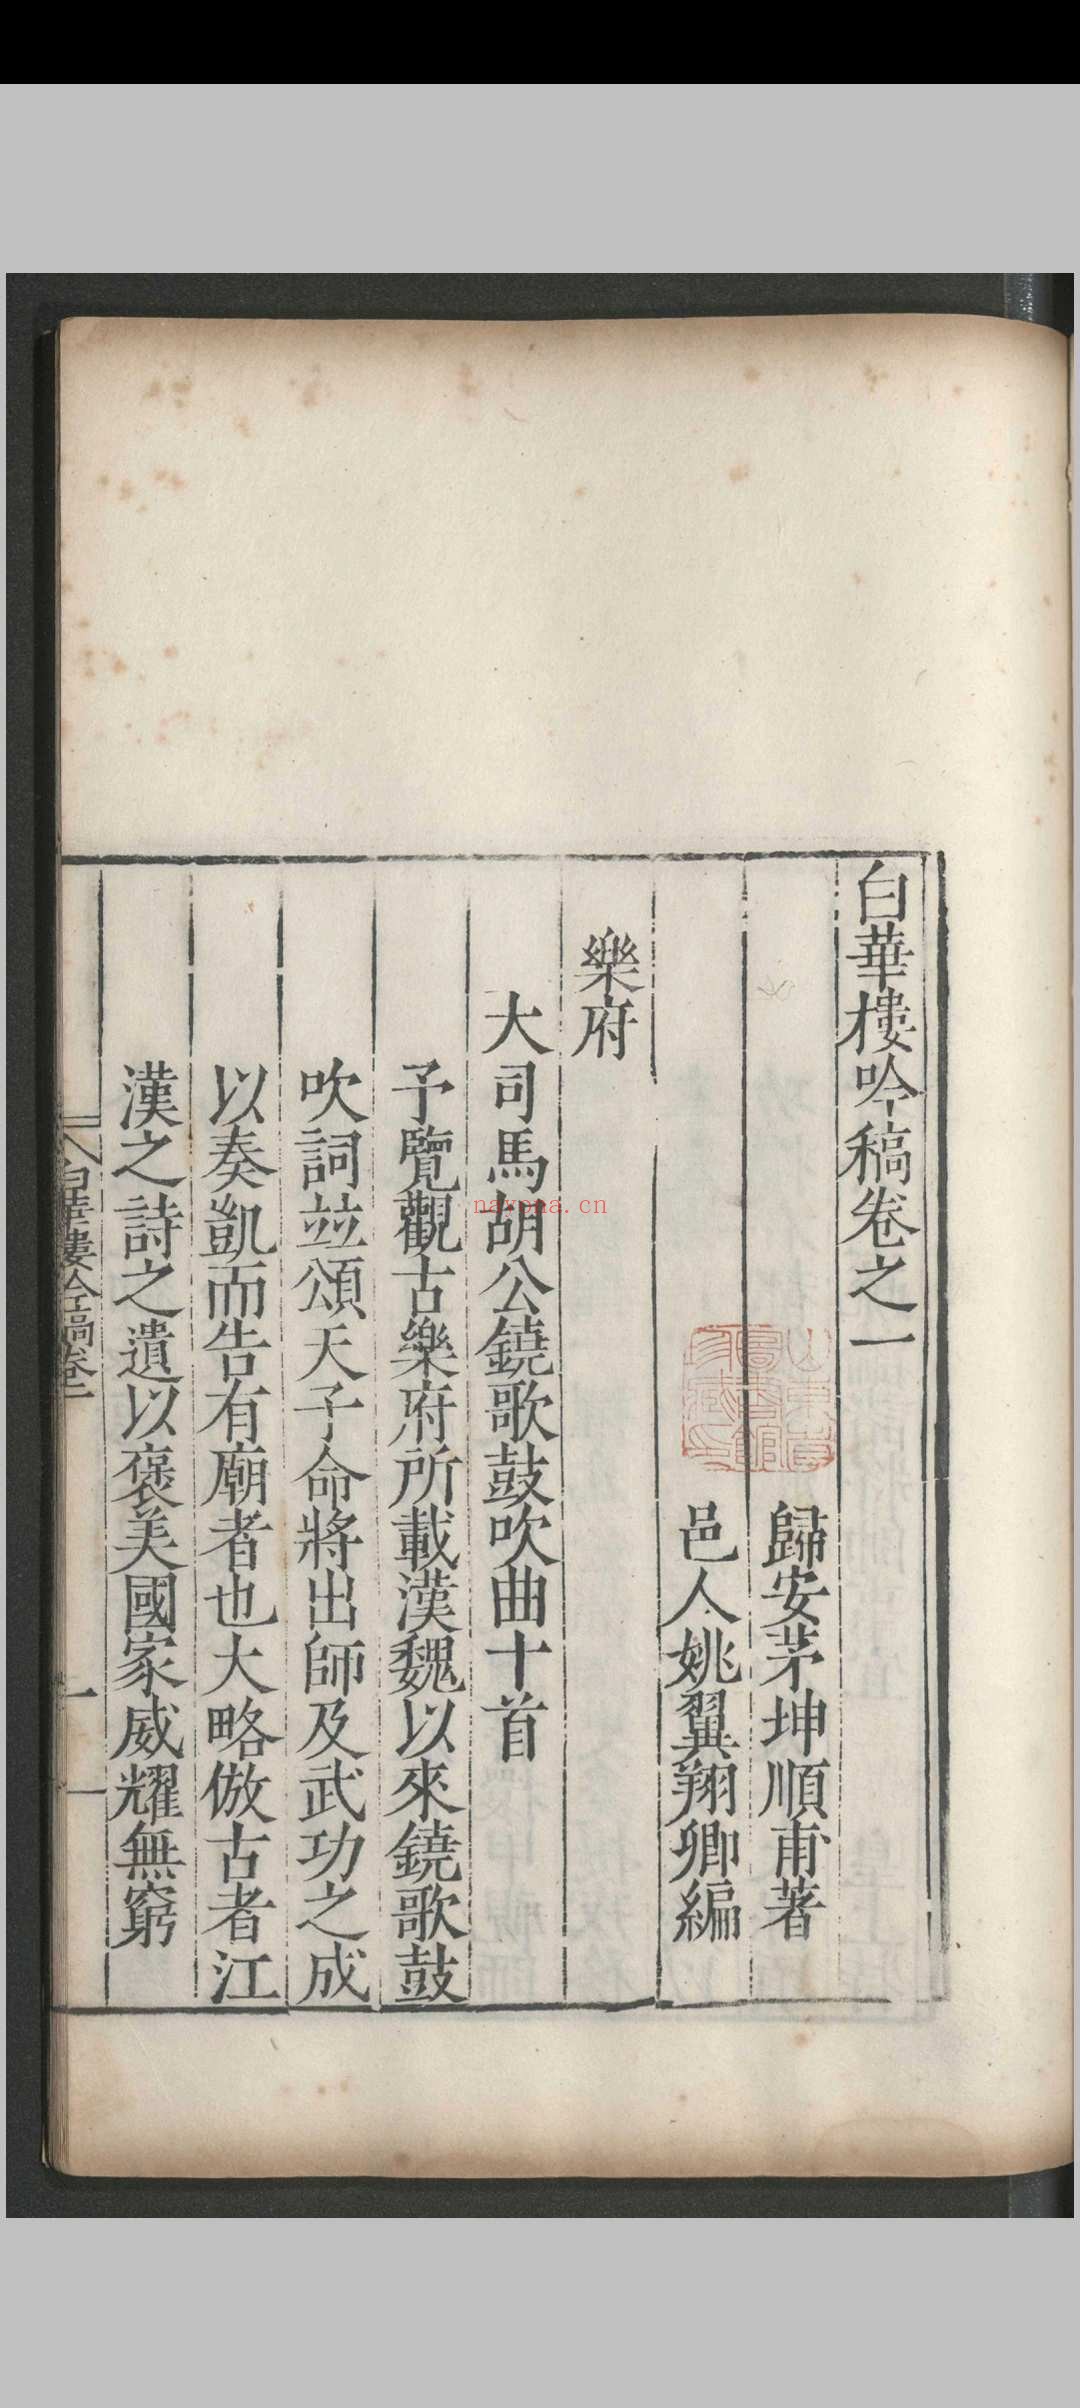 白華樓吟稿卷之一
歸安茅坤順甫著
邑人姚翼翔卿編
樂府
大司馬胡公鐃歌鼓吹曲十首
予覽觀古樂府所載漢魏以來鐃歌鼓
吹詞並頌天子命將出師及武功之成
以奏凱而告有廟者也大略倣古者江
漢之詩之遺以褒美國家威耀無窮
白華樓吟稿卷一
一
navona.cn